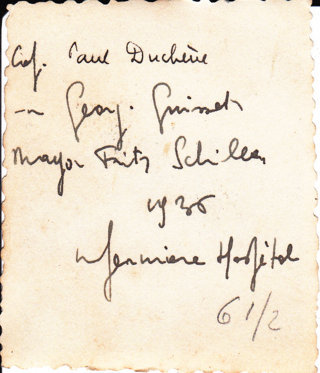 Cdf. Paul Duchène
— Georg. Guisset
Mayor Fritz Schiller
1936
Hospital
6 1/2